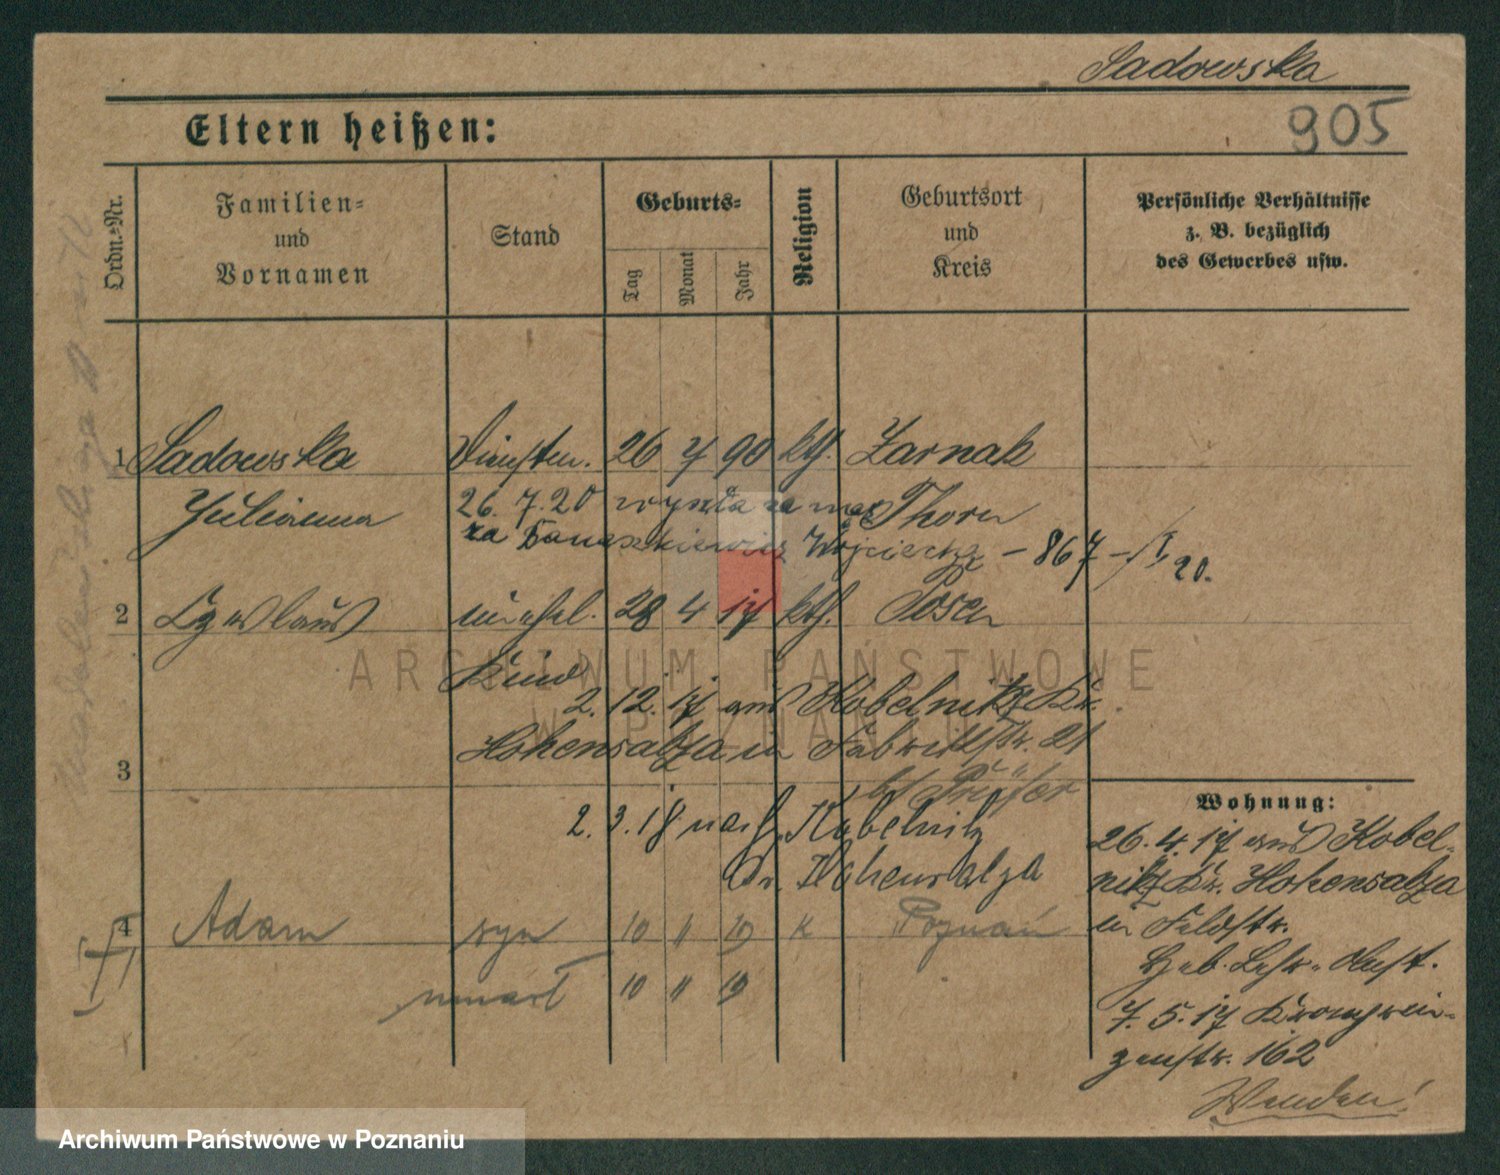 Sadowska
905
Eltern heißen:
Ordn.-Nr.
Familien-
und
Vornamen
Stand
Geburts-
Tag
Monat
Jahr
Religion
Geburtsort
und
Kreis
Persönliche Verhältnisse
z. B. bezüglich
des Gewerbes usw.
1 Sadowska Dienstm. 26 7 90 kth. Zarnak
Julianna 26. 7. 20 wyszła za mąż Thorn
za Banaszkiewicz Wojciecha - 867 - I, 20.
2 Czeslaus unehel. 28 4 17 kth. Posen
Kind
2. 12. 17 aus Kobelnitz Kr.
Hohensalza in Fabrikstr. 21
3 bei
2. 3. 18 nach Kobelnitz
Kr. Hohensalza
4 Adam syn 10 11 19 K Poznań
umarł 10 11 19
Wohnung:
26. 4. 17 aus Kobel-
nitz Kr. Hohensalza
in Feldstr.
Heb. Lehr. Anst.
7. 5. 17 Kronprin-
zenstr. 162
Wenden!
ARCHIWUM PAŃSTWOWE
W POZNANIU
Archiwum Państwowe w Poznaniu